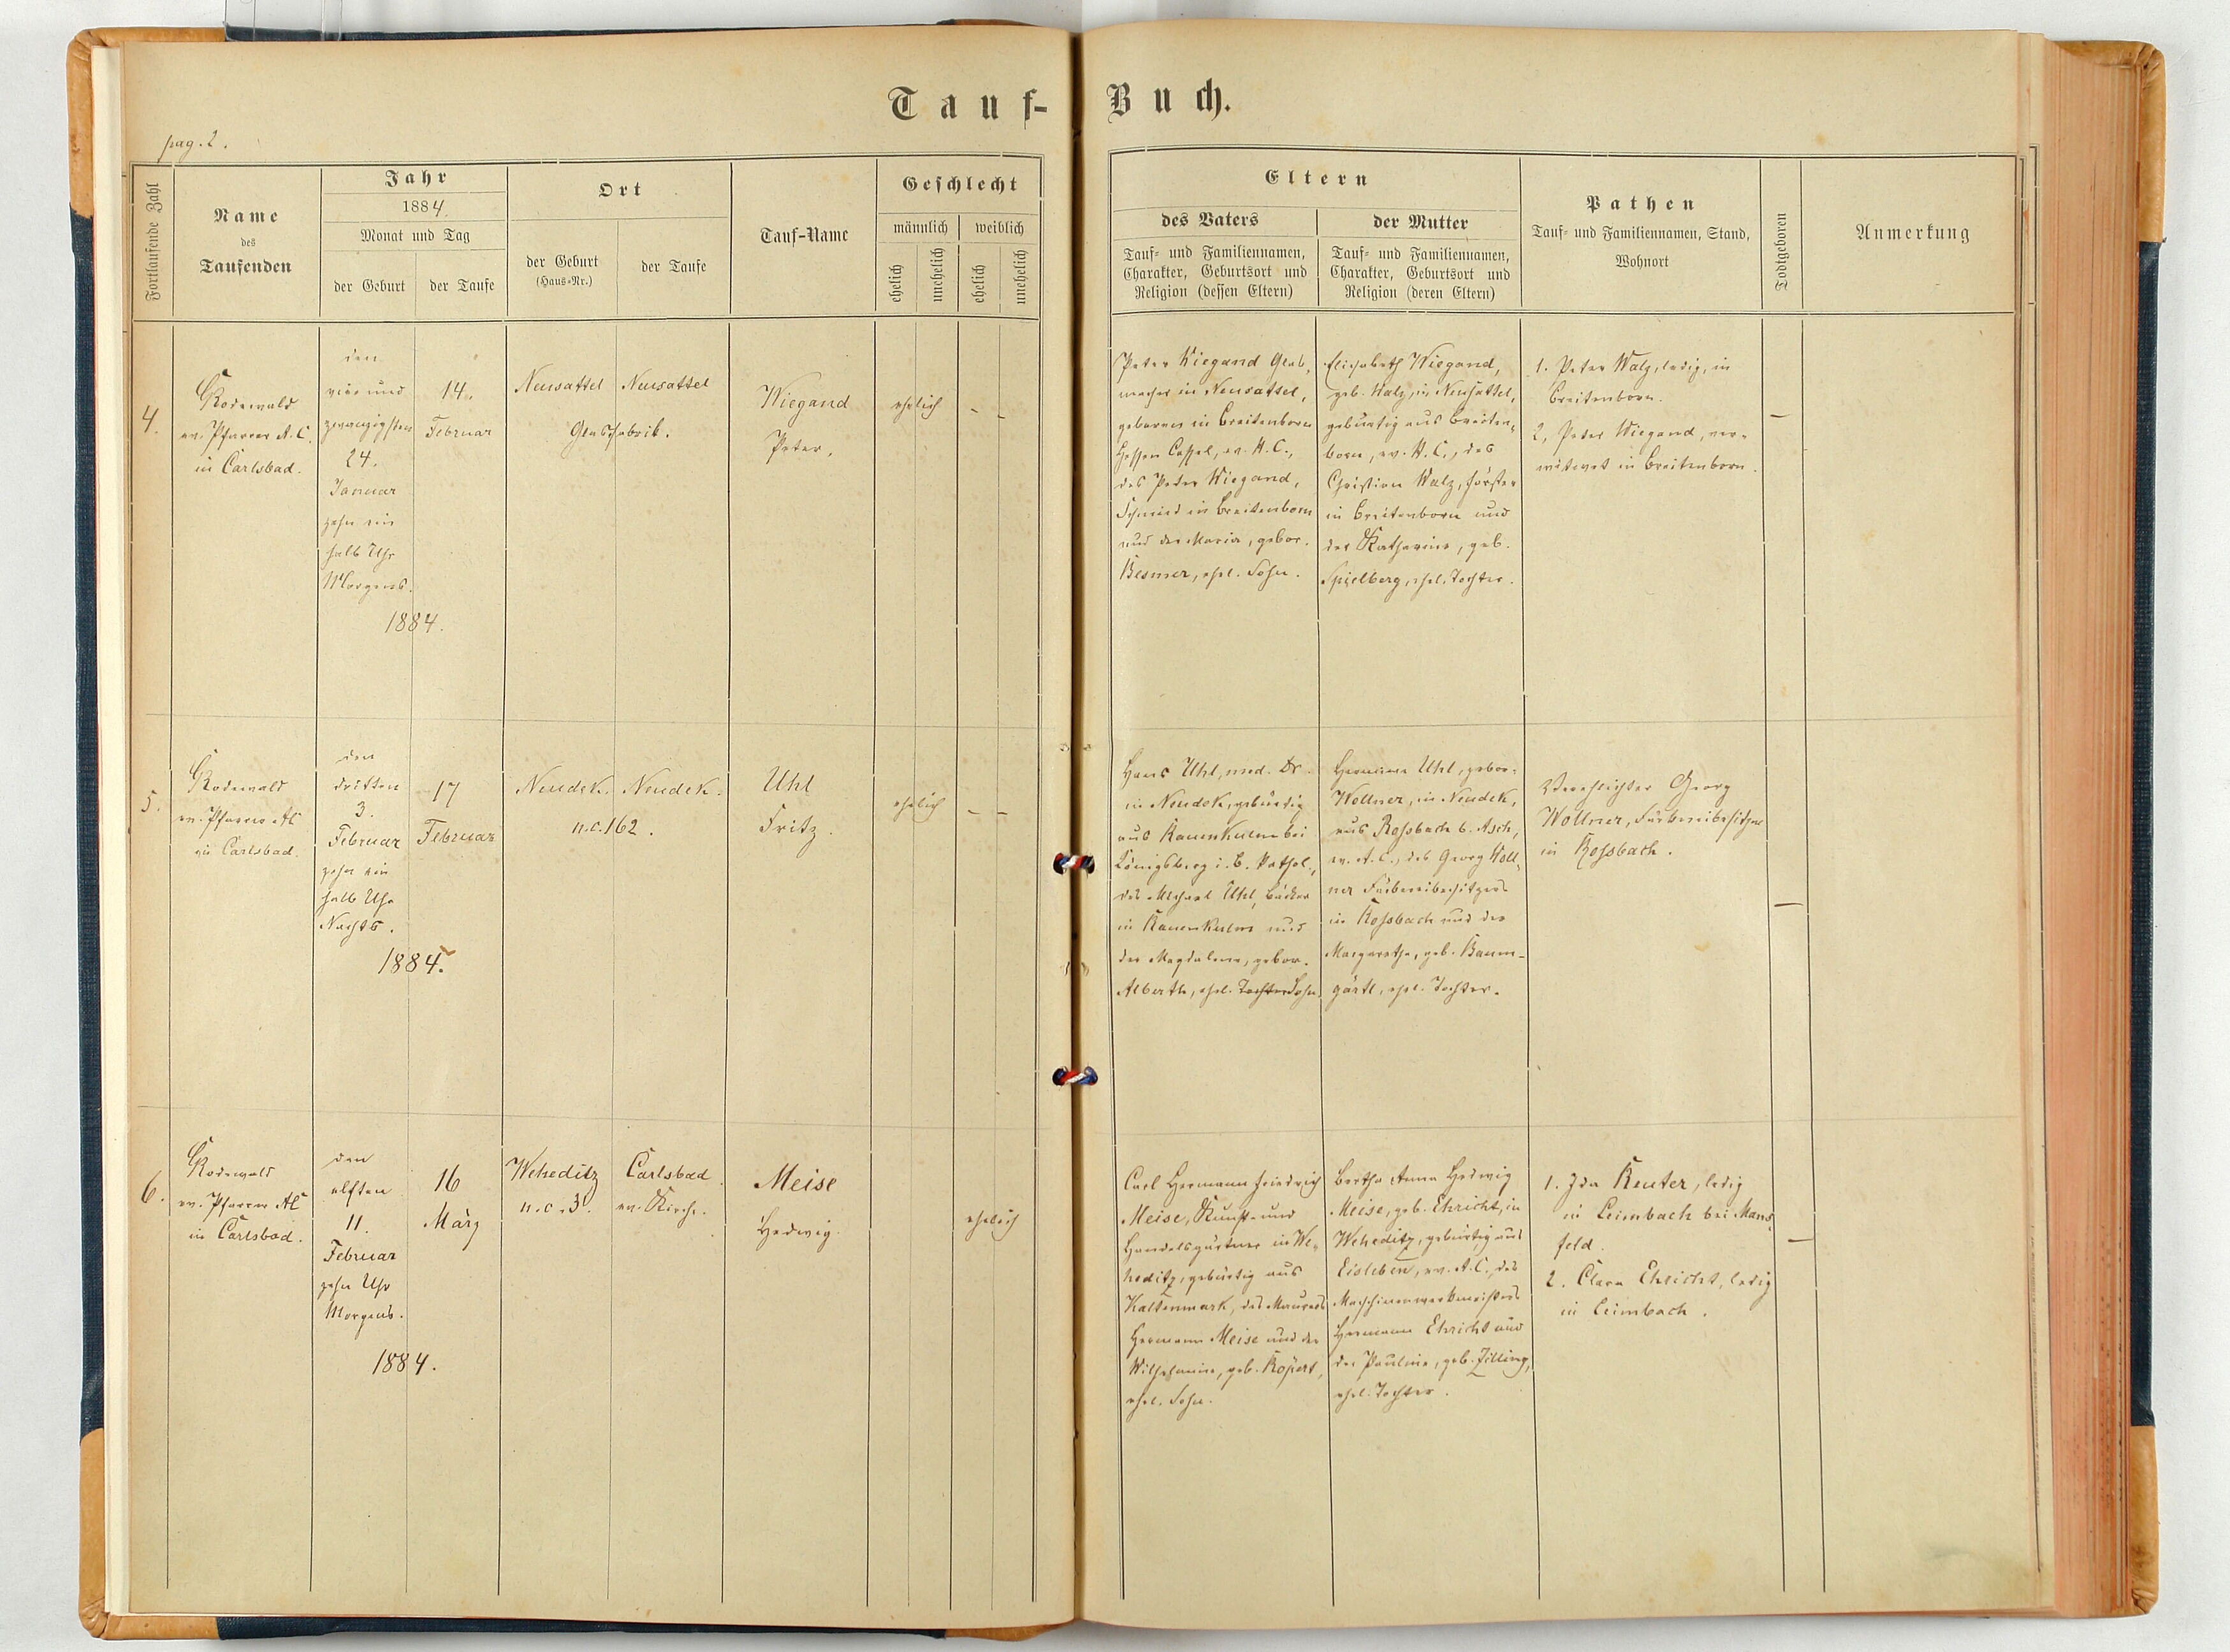 Tauf-Buch.
pag. 2.
Fortlaufende Zahl
Name
des
Taufenden
Jahr
1884.
Monat und Tag
der Geburt
der Taufe
Ort
der Geburt
(Haus-Nr.)
der Taufe
Tauf-Name
Geschlecht
männlich
weiblich
ehelich
unehelich
ehelich
unehelich
Eltern
des Vaters
Tauf- und Familiennamen,
Charakter, Geburtsort und
Religion (dessen Eltern)
der Mutter
Tauf- und Familiennamen,
Charakter, Geburtsort und
Religion (deren Eltern)
Pathen
Tauf- und Familiennamen, Stand,
Wohnort
Todtgeboren
Anmerkung
4.
Rodewald
ev. Pfarrer A. C.
in Carlsbad.
den
vier und
zwanzigsten
24.
Januar
zehn ein
halb Uhr
Morgens.
1884.
14.
Februar
Neusattel
Neusattel
Glasfabrik.
Wiegand
Peter.
ehelich
- -
Peter Wiegand Glas-
macher in Neusattel,
geboren in Breitenborn
Hessen Cassel, ev. A. C.,
des Peter Wiegand,
Schmied in Breitenborn
und der Maria, gebor.
Besmer, ehel. Sohn.
Elisabeth Wiegand,
geb. Walz, in Neusattel,
gebürtig aus Breiten-
born, ev. A. C., des
Christian Walz, Förster
in Breitenborn und
der Katharina, geb.
Spielberg, ehel. Tochter.
1. Peter Walz, ledig, in
Breitenborn.
2, Peter Wiegand, ver-
witwet in Breitenborn.
—
5.
Rodewald
ev. Pfarrer AC
in Carlsbad.
den
dritten
3.
Februar
zehn ein
halb Uhr
Nachts.
1884.
17
Februar
Neudek.
Neudek.
n.c. 162.
Uhl
Fritz.
ehelich
- -
Hans Uhl, med. Dr.
in Neudek, gebürtig
aus Kauenkulm bei
Königsberg i. B. kathol.,
des Michael Uhl, Bäcker
in Kauenkulm und
der Magdalena, gebor.
Alberth, ehel. Tochter Sohn
Hermine Uhl, gebor.
Wollner, in Neudek,
aus Rossbach b. Asch,
ev. A. C., des Georg Woll-
ner Färbereibesitzers
in Rossbach und der
Margaretha, geb. Baum-
gärtl, ehel. Tochter.
Verehlichter Georg
Wollner, Färbereibesitzer
in Rossbach.
—
6.
Rodewald
ev. Pfarrer AC
in Carlsbad.
den
elften
11.
Februar
zehn Uhr
Morgens.
1884.
16
März
Weheditz
n.c. 3.
Carlsbad
ev. Kirche.
Meise
Hedwig.
ehelich
Carl Hermann Friedrich
Meise, Kunst- und
Handelsgärtner in We-
heditz, gebürtig aus
Kaltenmark, des Maurers
Hermann Meise und der
Wilhelmine, geb. Ropert,
ehel. Sohn.
Bertha Anna Hedwig
Meise, geb. Ehricht, in
Weheditz, gebürtig aus
Eisleben, ev. A. C., des
Maschinenwerkmeisters
Hermann Ehricht und
der Pauline, geb. Zilling,
ehel. Tochter.
1. Ida Reuter, ledig
in Leimbach bei Mans-
feld.
2. Clara Ehricht, ledig
in Leimbach.
—